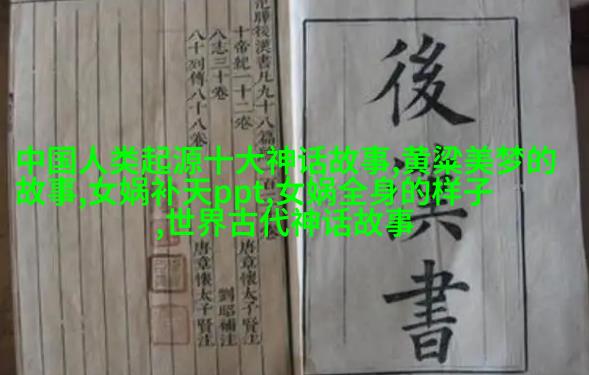 後漢書
後漢書凡九十八篇
十帝紀一十二卷 唐章懷太子賢注
八志三十卷 劉昭補注
八十列傳八十八卷 唐章懷太子賢注
中国人类起源十大神话故事,黄粱美梦的
故事,女娲补天ppt,女娲全身的样子
,世界古代神话故事